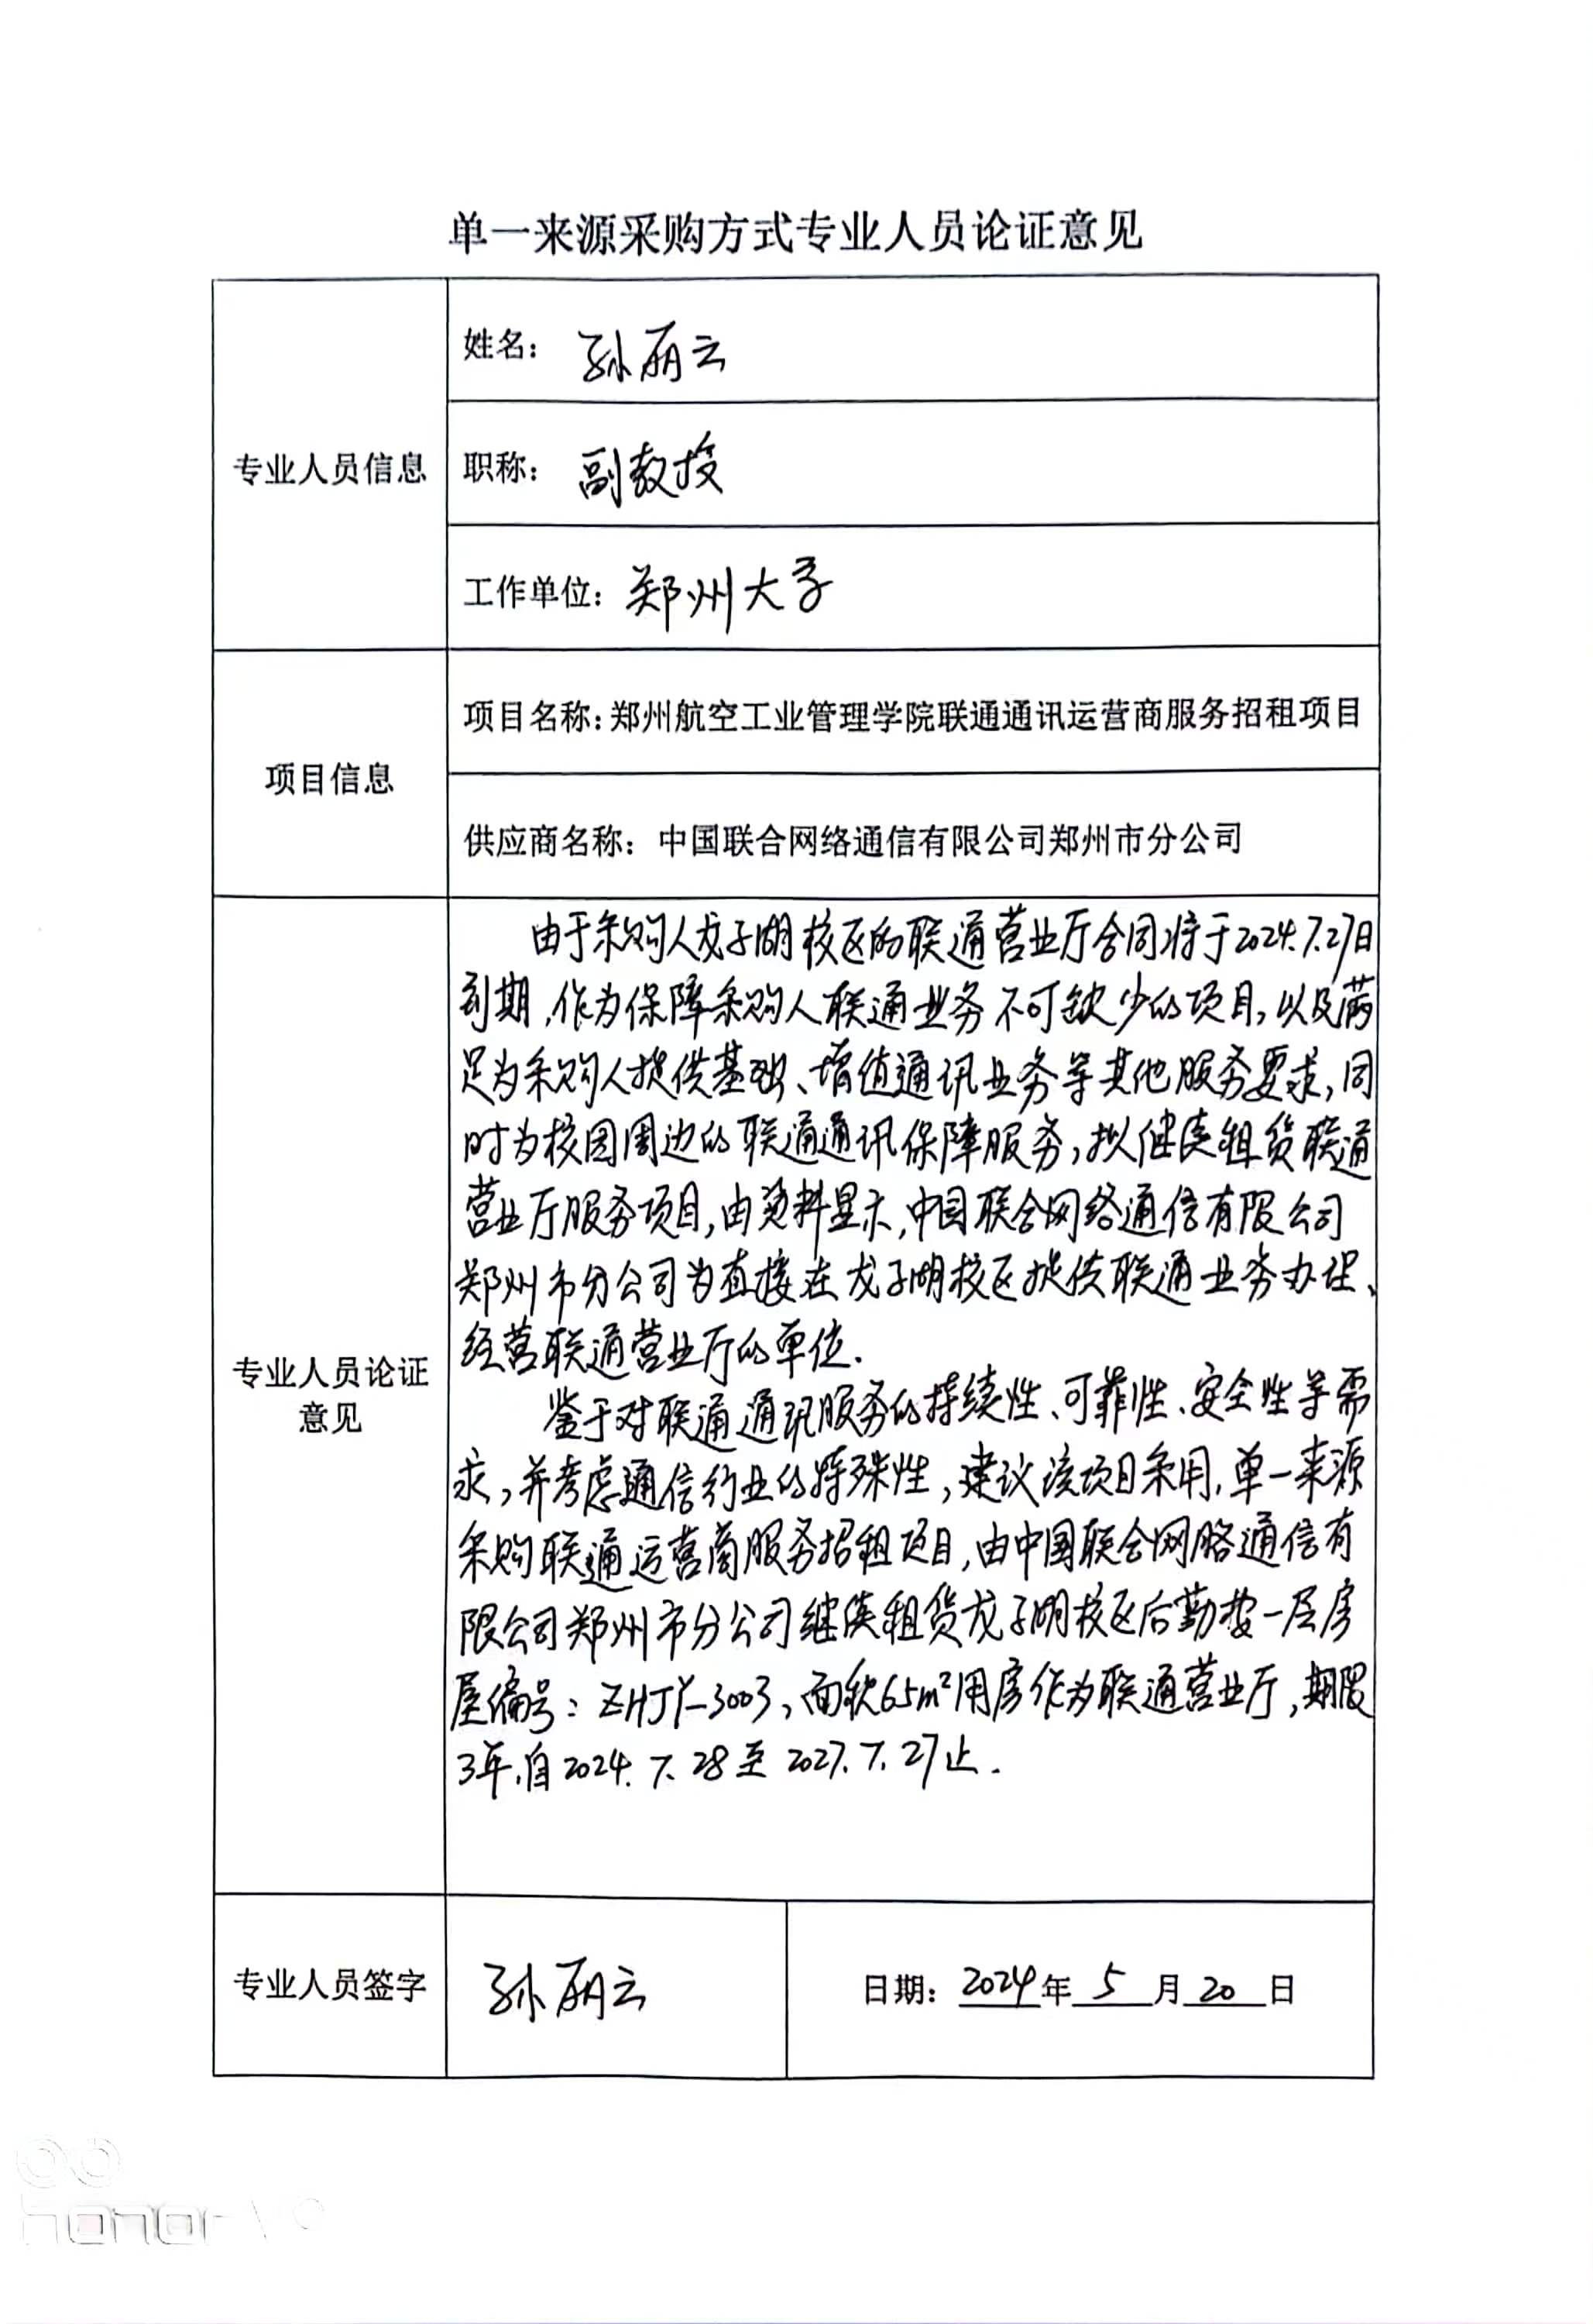 单一来源采购方式专业人员论证意见
专业人员信息
姓名：孙丽云
职称：副教授
工作单位：郑州大学
项目信息
项目名称：郑州航空工业管理学院联通通讯运营商服务招租项目
供应商名称：中国联合网络通信有限公司郑州市分公司
专业人员论证
意见
由于采购人龙子湖校区的联通营业厅合同将于2024.7.27日
到期,作为保障采购人联通业务不可缺少的项目,以及满
足为采购人提供基础、增值通讯业务等其他服务要求,同
时为校园周边的联通通讯保障服务,拟继续租赁联通
营业厅服务项目,由资料显示,中国联合网络通信有限公司
郑州市分公司为直接在龙子湖校区提供联通业务办理、
经营联通营业厅的单位.
鉴于对联通通讯服务的持续性、可靠性、安全性等需
求,并考虑通信行业的特殊性,建议该项目采用,单一来源
采购联通运营商服务招租项目,由中国联合网络通信有
限公司郑州市分公司继续租赁龙子湖校区后勤楼一层房
屋编号:ZHJY-3003,面积65m²用房作为联通营业厅,期限
3年,自2024.7.28至2027.7.27止.
专业人员签字
孙丽云
日期：2024年5月20日
honor